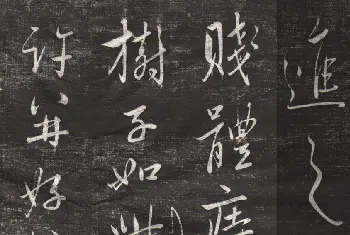 進之
賤體
樹子如
許并好